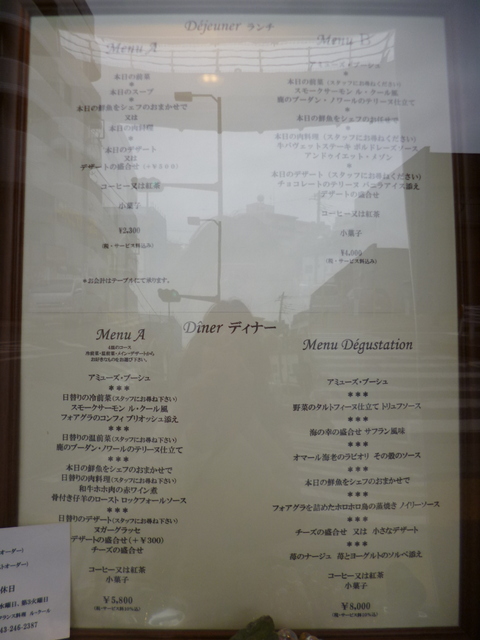 Déjeuner ランチ
Menu A
本日の前菜
*
本日のスープ
*
本日の鮮魚をシェフのおまかせで
又は
本日の肉料理
*
本日のデザート
又は
デザートの盛合せ(+¥300)
コーヒー又は紅茶
小菓子
¥2,300
(税・サービス料込み)
*お会計はテーブルにて承ります。
Menu B
アミューズ・ブーシュ
*
本日の前菜(スタッフにお尋ねください)
スモークサーモン ル・クール風
鹿のブーダン・ノワールのテリーヌ仕立て
*
本日の鮮魚をシェフのおまかせで
*
本日の肉料理(スタッフにお尋ねください)
牛バヴェットステーキ ボルドレーズソース
アンドゥイエット・メゾン
*
本日のデザート(スタッフにお尋ねください)
チョコレートのテリーヌ バニラアイス添え
デザートの盛合せ
コーヒー又は紅茶
小菓子
¥4,000
(税・サービス料込み)
Dîner ディナー
Menu A
4皿のコース
冷前菜・温前菜・メイン・デザートから
お好きなものをお選び下さい。
アミューズ・ブーシュ
***
日替りの冷前菜(スタッフにお尋ね下さい)
スモークサーモン ル・クール風
フォアグラのコンフィ ブリオッシュ添え
***
日替りの温前菜(スタッフにお尋ね下さい)
鹿のブーダン・ノワールのテリーヌ仕立て
***
本日の鮮魚をシェフのおまかせで
日替りの肉料理(スタッフにお尋ね下さい)
和牛ホホ肉の赤ワイン煮
骨付き仔羊のロースト ロックフォールソース
***
日替りのデザート(スタッフにお尋ね下さい)
ヌガーグラッセ
デザートの盛合せ(+¥300)
チーズの盛合せ
コーヒー又は紅茶
小菓子
¥5,800
(税・サービス料10%込)
Menu Dégustation
アミューズ・ブーシュ
***
野菜のタルトフィーヌ仕立て トリュフソース
***
海の幸の盛合せ サフラン風味
***
オマール海老のラビオリ その殻のソース
***
本日の鮮魚をシェフのおまかせで
***
フォアグラを詰めたホロホロ鳥の蒸焼き ノイリーソース
***
チーズの盛合せ 又は 小さなデザート
***
苺のナージュ 苺とヨーグルトのソルベ添え
コーヒー又は紅茶
小菓子
¥8,000
(税・サービス料10%込)
オーダー)
オーダー)
休日
水曜日、第3火曜日
フランス料理 ル・クール
43-246-2387